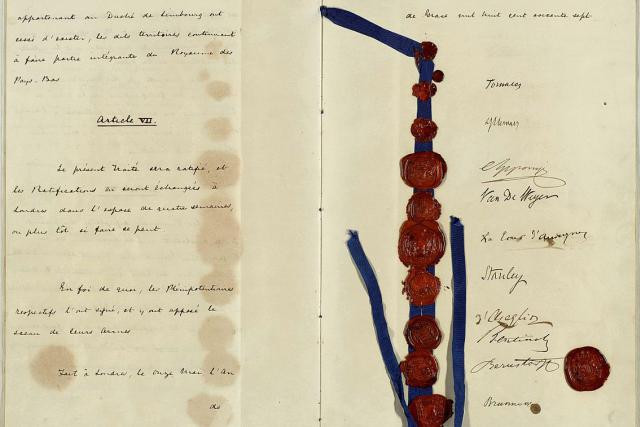 appartenant au Duché de Limbourg ont
cessé d'exister, les dits territoires continuent
à faire partie intégrante du Royaume des
Pays-Bas
Article VII.
Le présent Traité sera ratifié, et
les Ratifications en seront échangées à
Londres dans l'espace de quatre semaines,
ou plus tôt si faire se peut
En foi de quoi, les Plénipotentiaires
respectifs l'ont signé, et y ont apposé le
sceau de leurs Armes
Fait à Londres, le onze Mai l'An
de
de Grace mil huit cent soixante sept
Tornaco
Apponyi
Van De Weyer
La Tour d'Auvergne
Stanley
d'Azeglio
Bentinck
Bernstorff
Brunnow